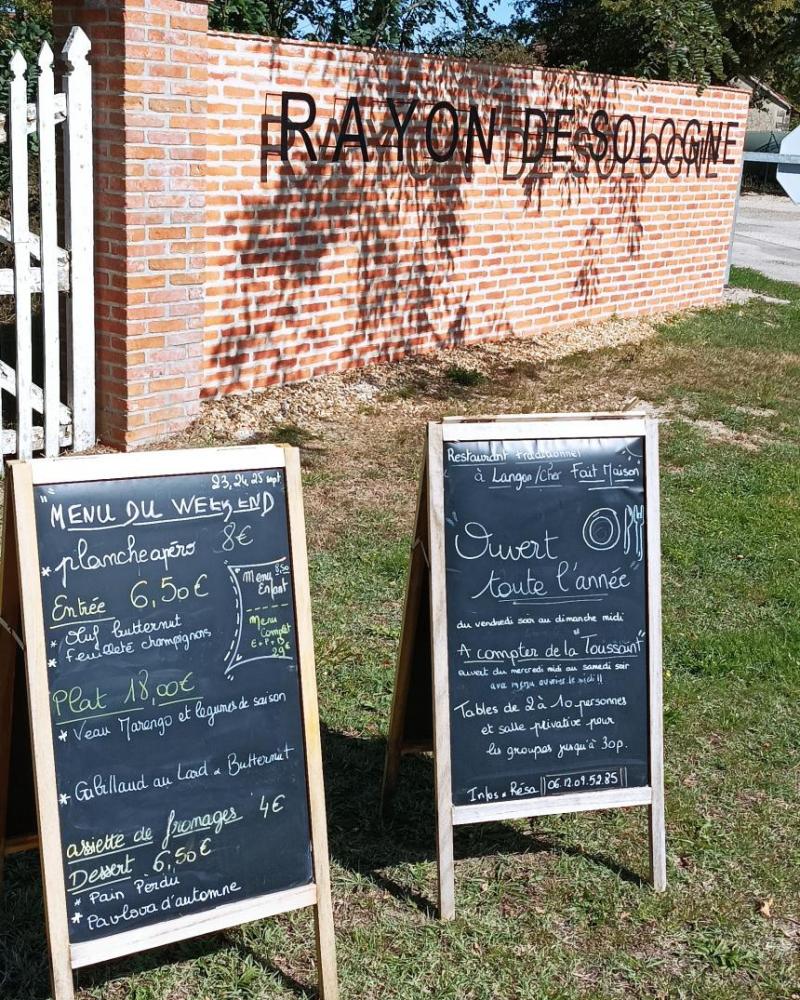 RAYON DE SOLOGNE
23, 24, 25 sept
MENU DU WEEKEND
* plancheapéro 8€
Entrée 6,50€
* Œuf butternut
* Feuilleté champignons
Menu 8,50
Enfant
Menu
Complet
E+P+D
29€
Plat 18,00€
* Veau Marengo et légumes de saison
* Cabillaud au Lard & Butternut
assiette de fromages 4€
Dessert 6,50€
* Pain Perdu
* Pavlova d'automne
Restaurant traditionnel
à Langon/Cher Fait Maison
Ouvert
toute l'année
du vendredi soir au dimanche midi
"A compter de la Toussaint"
ouvert du mercredi midi au samedi soir
avec menu ouvrier le midi!!
Tables de 2 à 10 personnes
et salle privative pour
les groupes jusqu'à 30p.
Infos & Résa 06.12.09.52.85